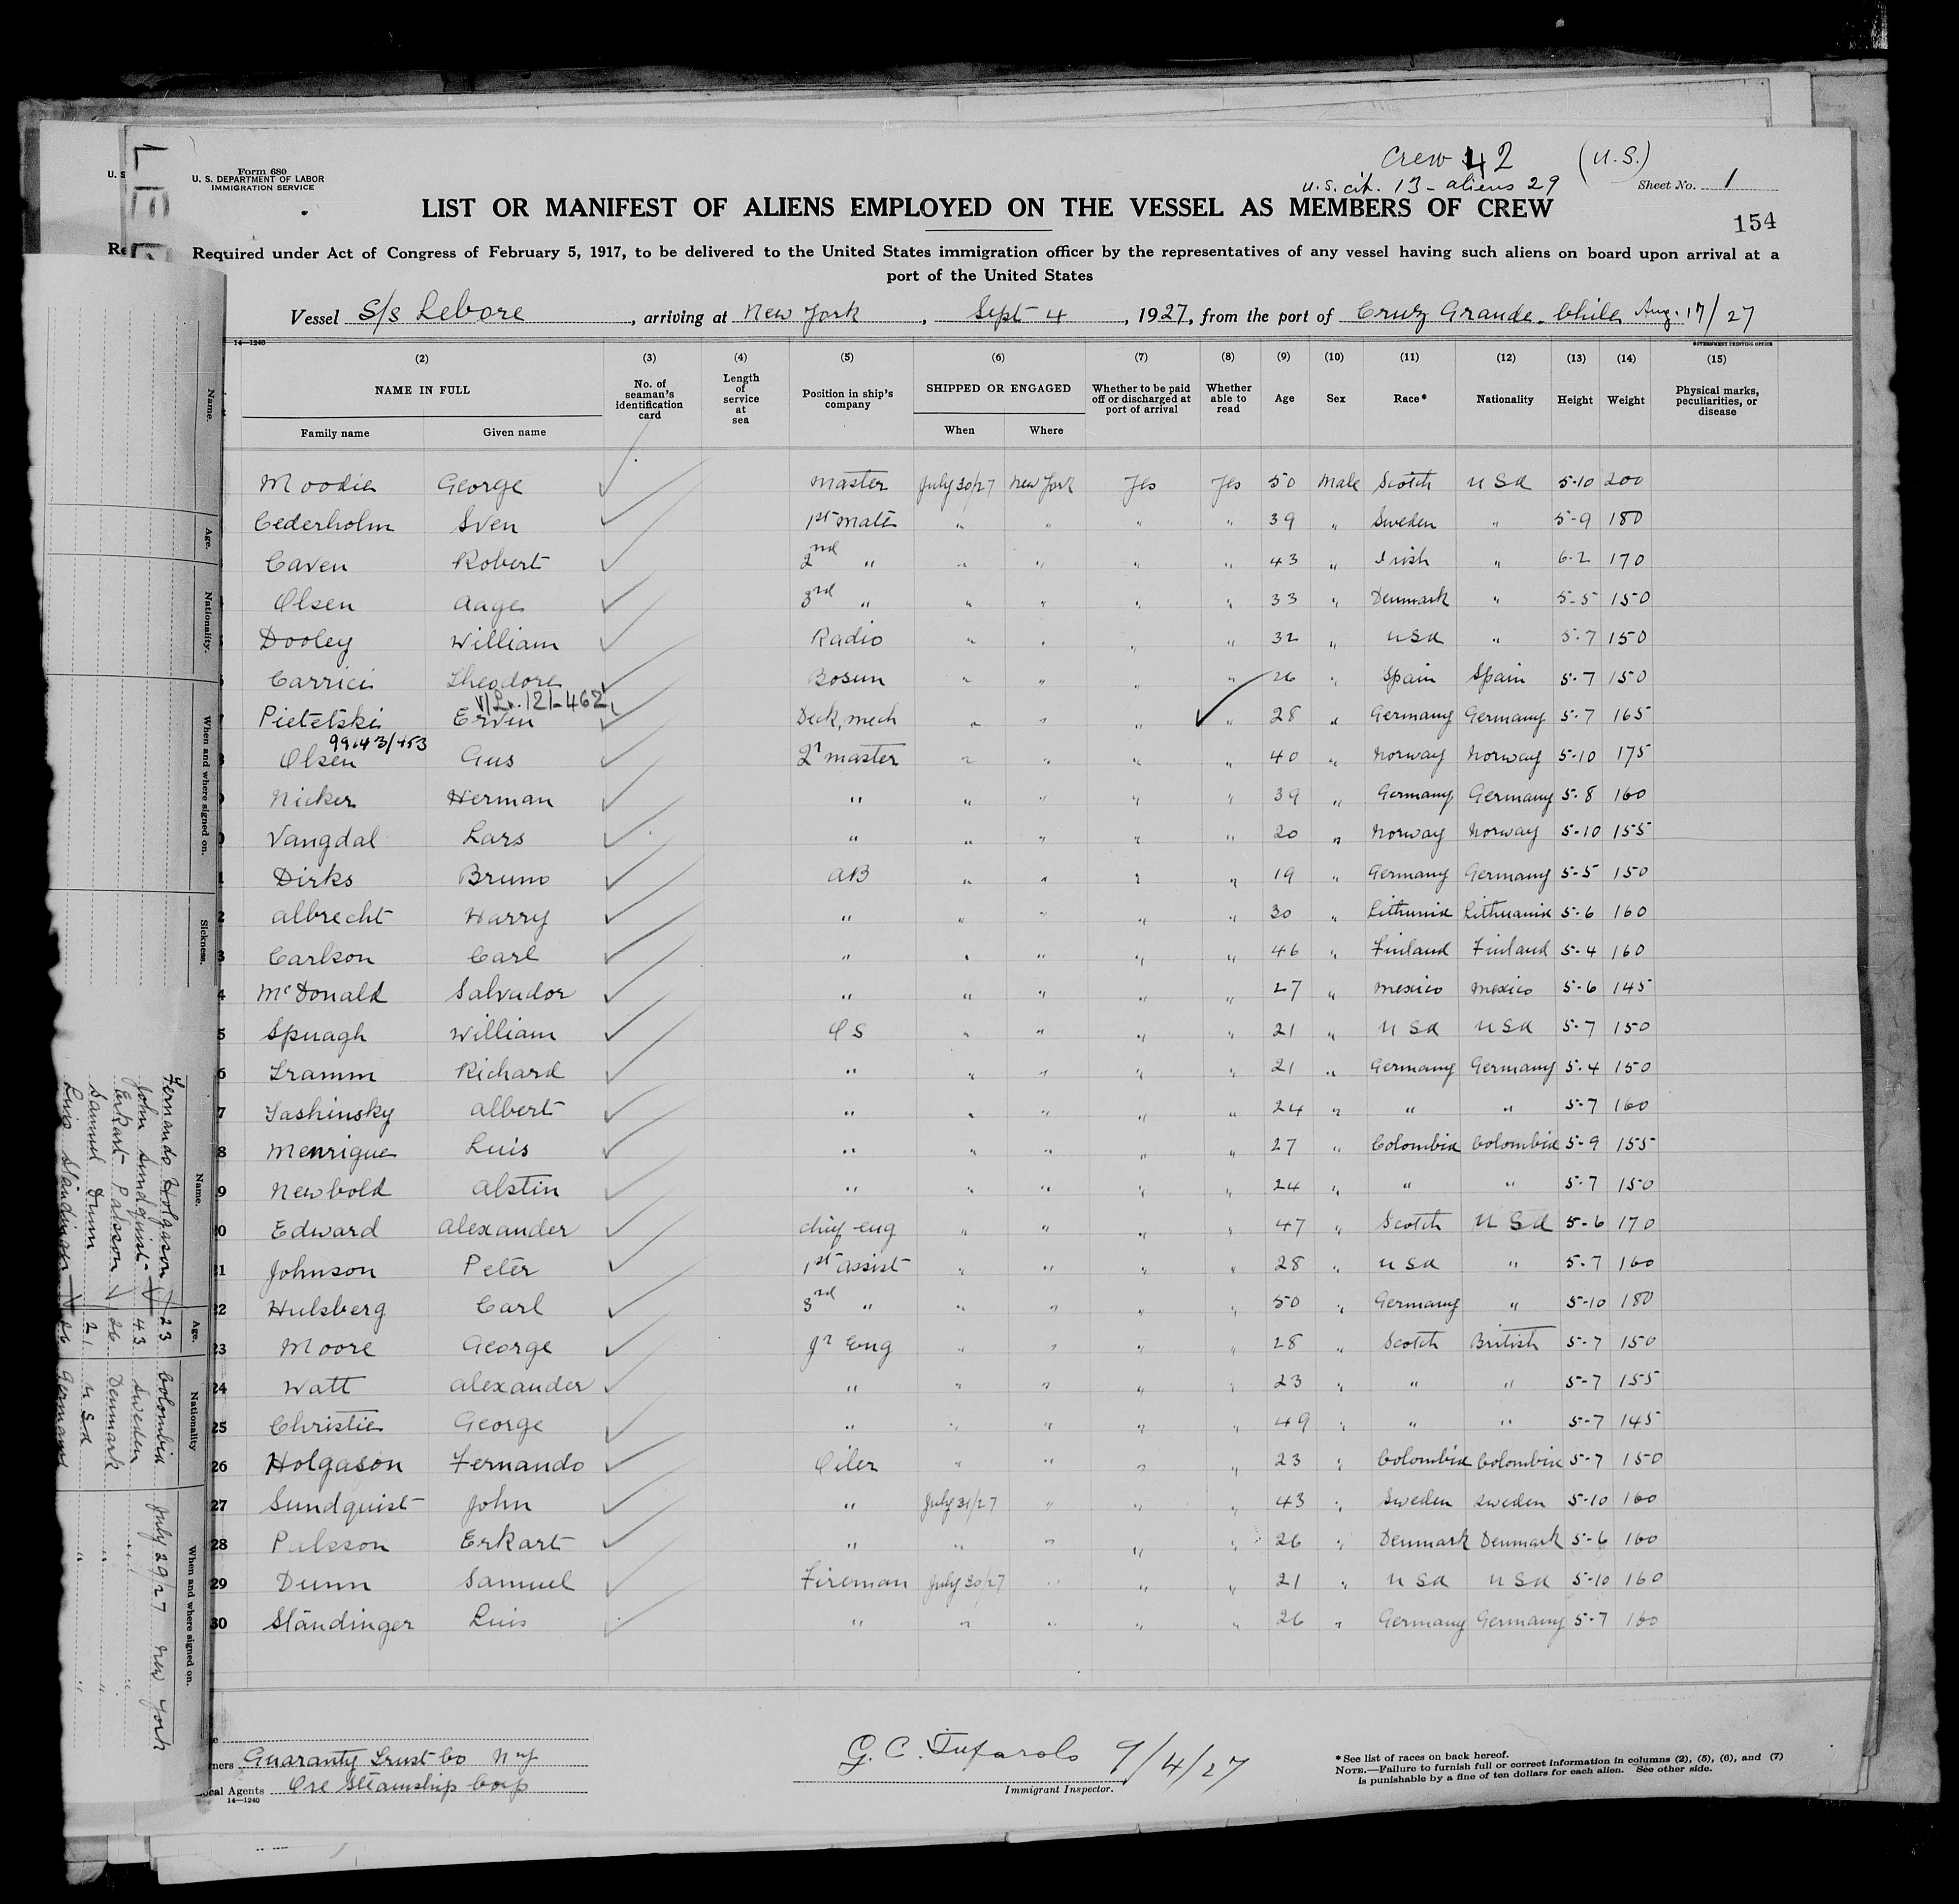 Form 680
U. S. DEPARTMENT OF LABOR
IMMIGRATION SERVICE
Crew 42 (U.S.)
U.S. cit. 13 - aliens 29
Sheet No. 1
LIST OR MANIFEST OF ALIENS EMPLOYED ON THE VESSEL AS MEMBERS OF CREW
154
Required under Act of Congress of February 5, 1917, to be delivered to the United States immigration officer by the representatives of any vessel having such aliens on board upon arrival at a
port of the United States
Vessel S/s Lebore, arriving at New York, Sept 4, 1927, from the port of Cruz Grande. Chile Aug. 17/27
14—1240 GOVERNMENT PRINTING OFFICE
(2) (3) (4) (5) (6) (7) (8) (9) (10) (11) (12) (13) (14) (15)
NAME IN FULL No. of seaman's identification card Length of service at sea Position in ship's company SHIPPED OR ENGAGED Whether to be paid off or discharged at port of arrival Whether able to read Age Sex Race* Nationality Height Weight Physical marks, peculiarities, or disease
Family name Given name When Where
Moodie George Master July 30/27 New York Yes Yes 50 Male Scotch USA 5-10 200
Cederholm Sven 1st Mate " " " " 39 " Sweden " 5-9 180
Caven Robert 2nd " " " " " 43 " Irish " 6-2 170
Olsen Aage 3rd " " " " " 33 " Denmark " 5-5 150
Dooley William Radio " " " " 32 " USA " 5-7 150
Carrici Theodore Bosun " " " " 26 " Spain Spain 5-7 150
121-462
Pietetski Ervin Deck mech " " " " 28 " Germany Germany 5-7 165
9943/453
Olsen Gus Qr master " " " " 40 " Norway Norway 5-10 175
Nicker Herman " " " " " 39 " Germany Germany 5-8 160
Vangdal Lars " " " " " 20 " Norway Norway 5-10 155
Dirks Bruno AB " " " " 19 " Germany Germany 5-5 150
Albrecht Harry " " " " " 30 " Lithunia Lithuania 5-6 160
Carlson Carl " " " " " 46 " Finland Finland 5-4 160
McDonald Salvador " " " " " 27 " Mexico Mexico 5-6 145
Spuagh William OS " " " " 21 " USA USA 5-7 150
Tramm Richard " " " " " 21 " Germany Germany 5-4 150
Tashinsky Albert " " " " " 24 " " " 5-7 160
Menrique Luis " " " " " 27 " Colombia Colombia 5-9 155
Newbold Alstin " " " " " 24 " " " 5-7 150
Edward Alexander Chief eng " " " " 47 " Scotch USA 5-6 170
21 Johnson Peter 1st Assist " " " " 28 " USA " 5-7 160
22 Hulsberg Carl 3rd " " " " " 50 " Germany " 5-10 180
23 Moore George Jr Eng " " " " 28 " Scotch British 5-7 150
24 Watt Alexander " " " " " 23 " " " 5-7 155
25 Christie George " " " " " 49 " " " 5-7 145
26 Holgason Fernando Oiler " " " " 23 " Colombia Colombia 5-7 150
27 Sundquist John " July 31/27 " " " 43 " Sweden Sweden 5-10 160
28 Palsson Erkart " " " " " 26 " Denmark Denmark 5-6 160
29 Dunn Samuel Fireman July 30/27 " " " 21 " USA USA 5-10 160
30 Ständinger Luis " " " " " 26 " Germany Germany 5-7 160
Guaranty Trust Co N.Y.
Local Agents Ore Steamship Corp
14—1240
G. C. Tufarolo 9/4/27
Immigrant Inspector.
*See list of races on back hereof.
NOTE.—Failure to furnish full or correct information in columns (2), (5), (6), and (7)
is punishable by a fine of ten dollars for each alien. See other side.
Name. Age. Nationality. When and where signed on. Sickness.
Name. Age. Nationality When and where signed on.
Fernando Holgason 23 Colombia July 29/27 New York
John Sundquist 43 Sweden " "
Erkart Palsson 26 Denmark " "
Samuel Dunn 21 USA " "
Luis Ständinger 26 Germany " "